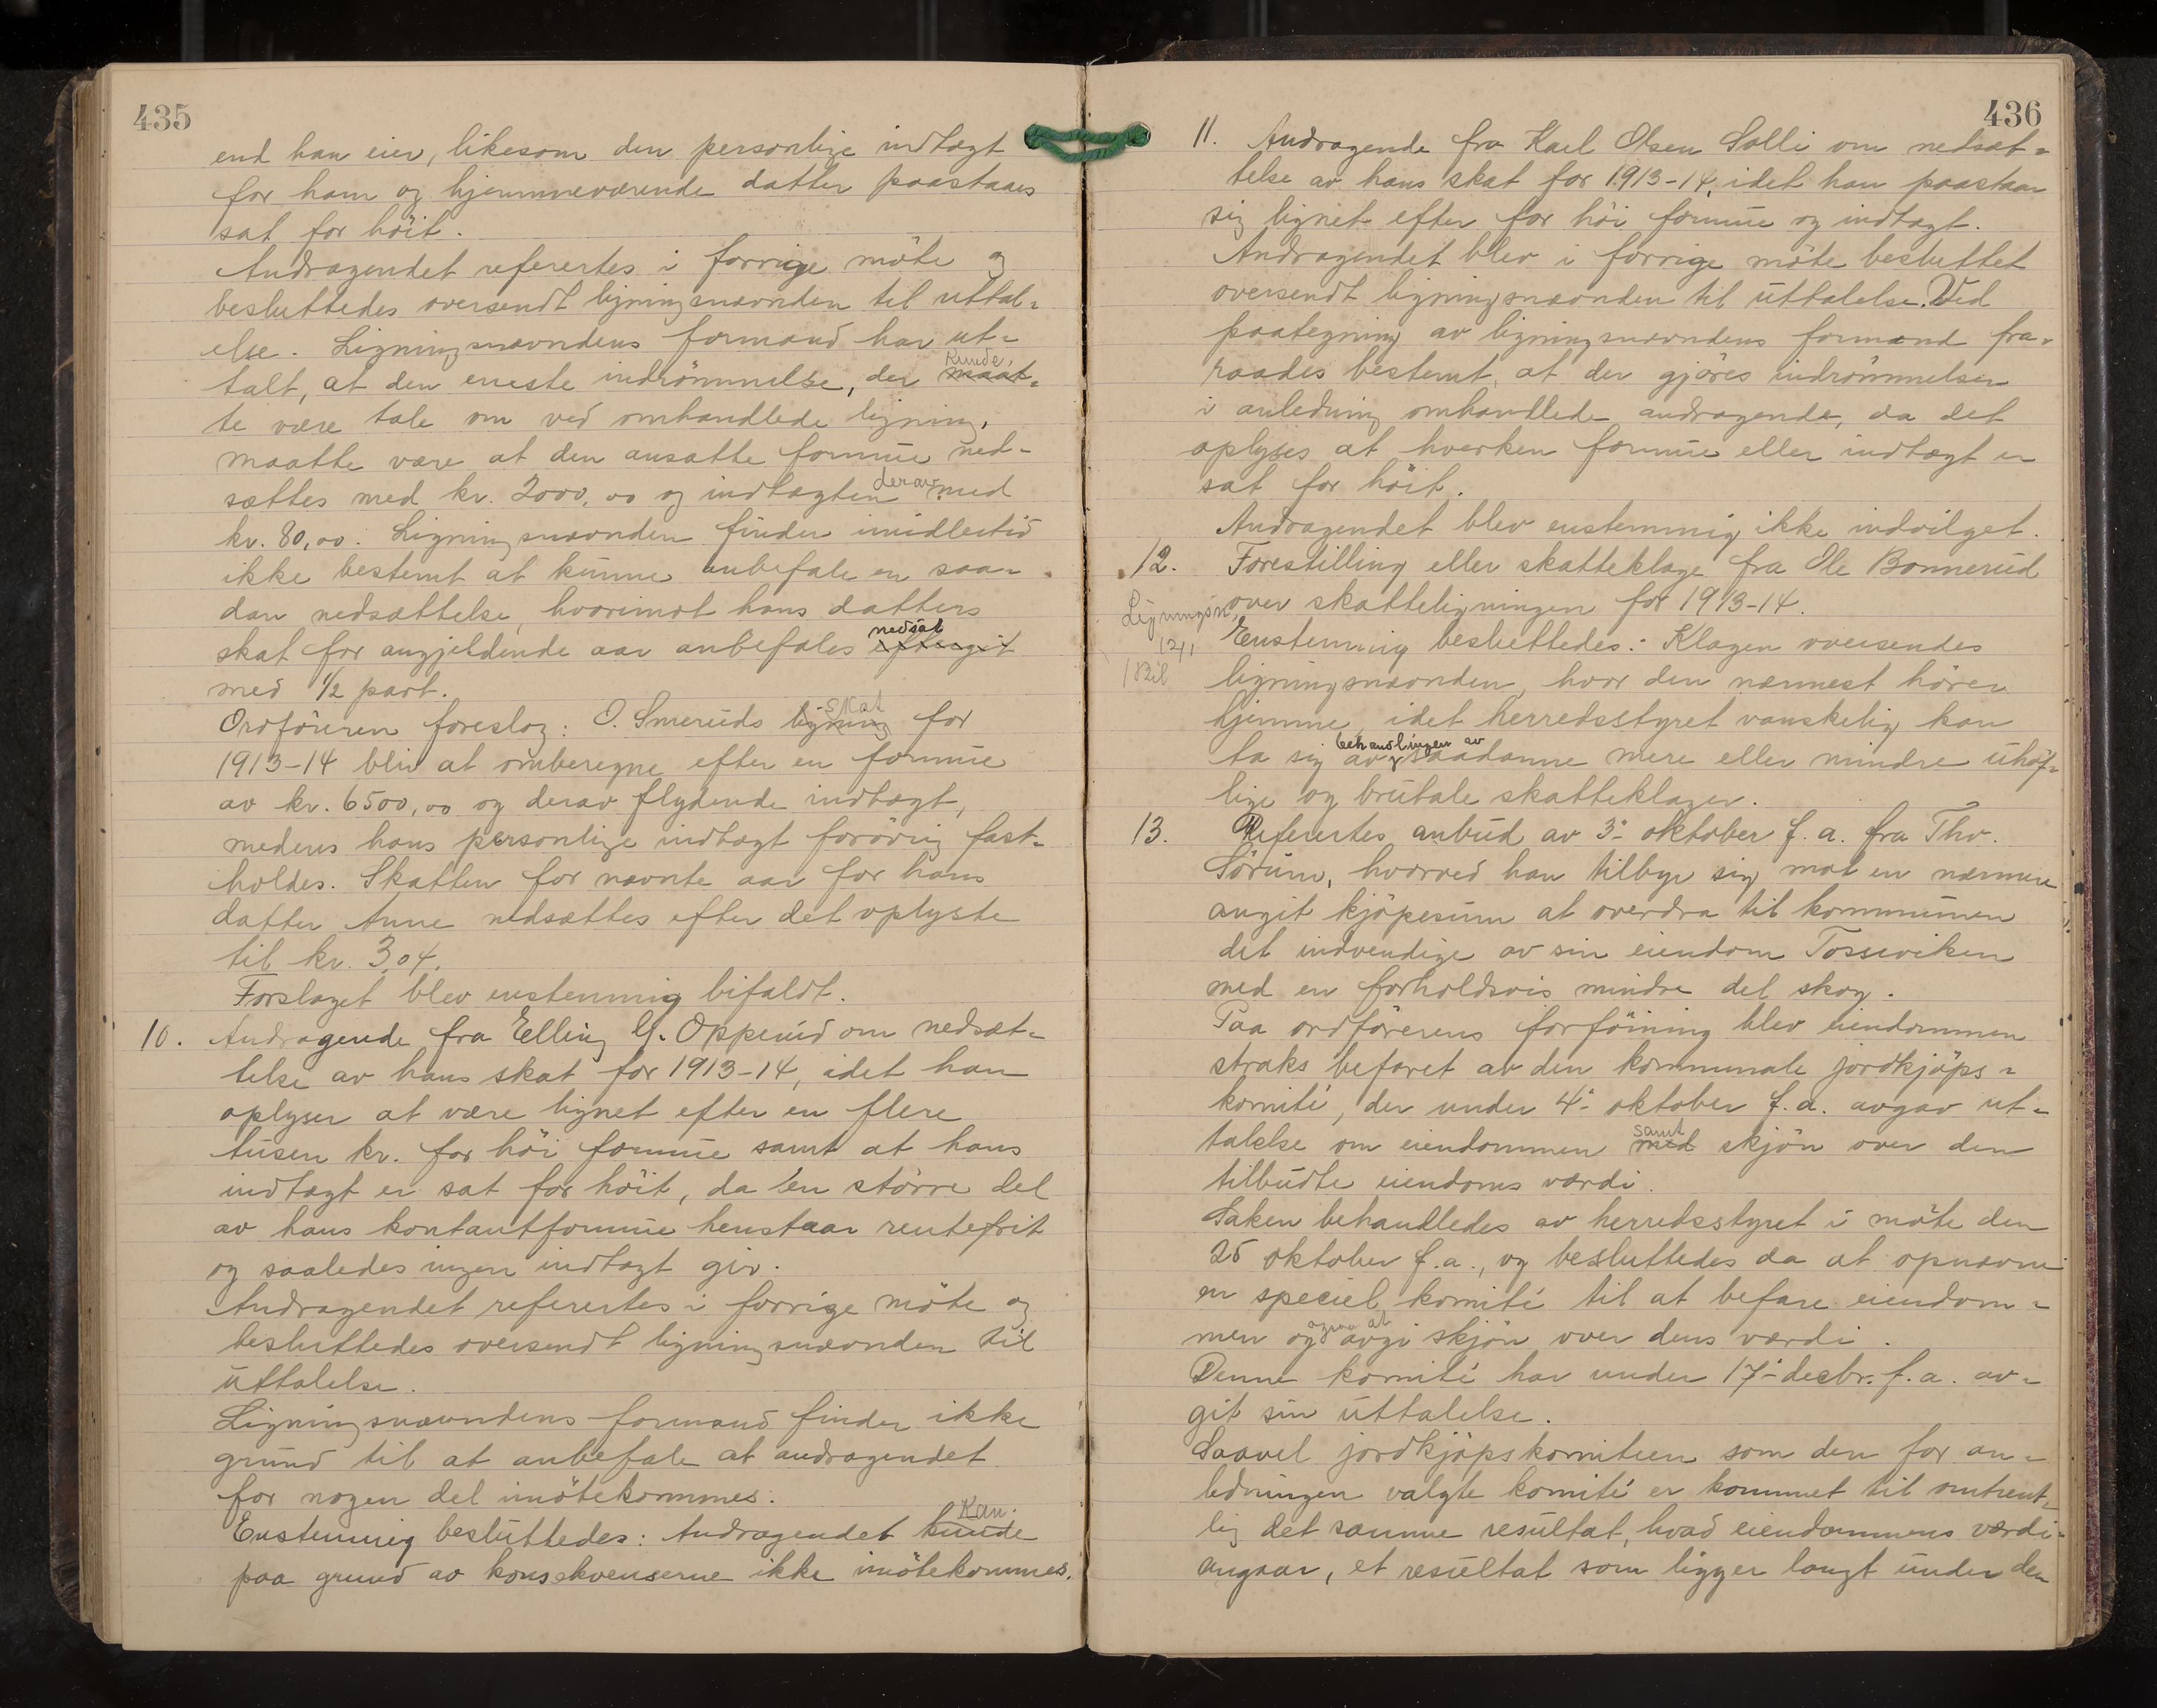 435
end han eier, likesom den personlige indtægt
for ham og hjemmeværende datter paastaaes
sat for höit.
Andragendet referertes i forrige möte og
besluttedes oversendt ligningsnævnden til uttal-
else. Ligningsnævndens formand har ut-
talt, at den eneste indrömmelse, der kunde, maat-
te være tale om ved omhandlede ligning,
maatte være at den ansatte formue ned-
sættes med kr. 2000,00 og indtægten derav med
kr. 80,00. Ligningsnævnden finder imidlertid
ikke bestemt at kunne anbefale en saa-
dan nedsættelse, hvorimot hans datters
skat for angjeldende aar anbefales nedsat eftergit
med 1/2 part.
Ordföreren foreslog: O. Smeruds ligning skat for
1913-14 blir at omberegne efter en formue
av kr. 6500,00 og derav flydende indtægt,
medens hans personlige indtægt forövrig fast-
holdes. Skatten for nævnte aar for hans
datter Anne nedsættes efter det oplyste
til kr. 3,04.
Forslaget blev enstemmig bifaldt.
10. Andragende fra Elling G. Opperud om nedsæt-
telse av hans skat for 1913-14, idet han
oplyser at være lignet efter en flere
tusen kr. for höi formue samt at hans
indtægt er sat for höit, da en större del
av hans kontantformue henstaar rentefrit
og saaledes ingen indtægt gir.
Andragendet referertes i forrige möte og
besluttedes oversendt ligningsnævnden til
uttalelse.
Ligningsnævndens formand finder ikke
grund til at anbefale at andragendet
for nogen del imötekommes.
Enstemmig besluttedes: Andragendet kunde kan
paa grund av konsekvenserne ikke imötekommes.
436
11. Andragende fra Karl Olsen Solli om nedsæt-
telse av hans skat for 1913-14, idet han paastaar
sig lignet efter for höi formue og indtægt.
Andragendet blev i forrige möte besluttet
oversendt ligningsnævnden til uttalelse. Ved
paategning av ligningsnævndens formand fra-
raades bestemt, at der gjöres indrömmelser
i anledning omhandlede andragende, da det
oplyses at hverken formue eller indtægt er
sat for höit.
Andragendet blev enstemmig ikke indvilget.
12. Forestilling eller skatteklage fra Ole Bonnerud
over skatteligningen for 1913-14.
Ligningsn.
12/1
1 Bil
Enstemmig besluttedes: Klagen oversendes
ligningsnævnden, hvor den nærmest hörer
hjemme, idet herredsstyret vanskelig kan
ta sig av behandlingen av saadanne mere eller mindre uhöf-
lige og brutale skatteklager.
13. Referertes anbud av 3. oktober f. a. fra Thv.
Sörum, hvorved han tilbyr sig mot en nærmere
angit kjöpesum at overdra til kommunen
det indvendige av sin eiendom Tosseviken
med en forholdsvis mindre del skog.
Paa ordförerens forföining blev eiendommen
straks befaret av den kommunale jordkjöps-
komité, der under 4. oktober f. a. avgav ut-
talelse om eiendommen samt med skjön over den
tilbudte eiendoms værdi.
Saken behandledes av herredsstyret i möte den
25 oktober f. a., og besluttedes da at opnævne
en speciel komité til at befare eiendom-
men og avgi skjön over dens værdi.
Denne komité har under 17. decbr. f. a. av-
git sin uttalelse.
Saavel jordkjöpskomiteen som den for an-
ledningen valgte komité er kommet til omtrent-
lig det samme resultat, hvad eiendommens værdi
angaar, et resultat som ligger langt under den